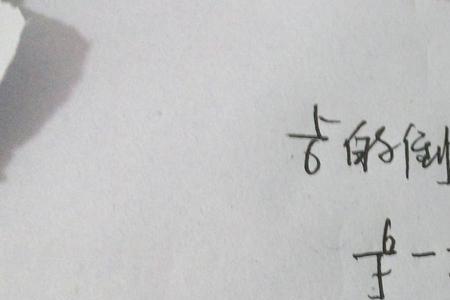 5/6的倒
6/5 -